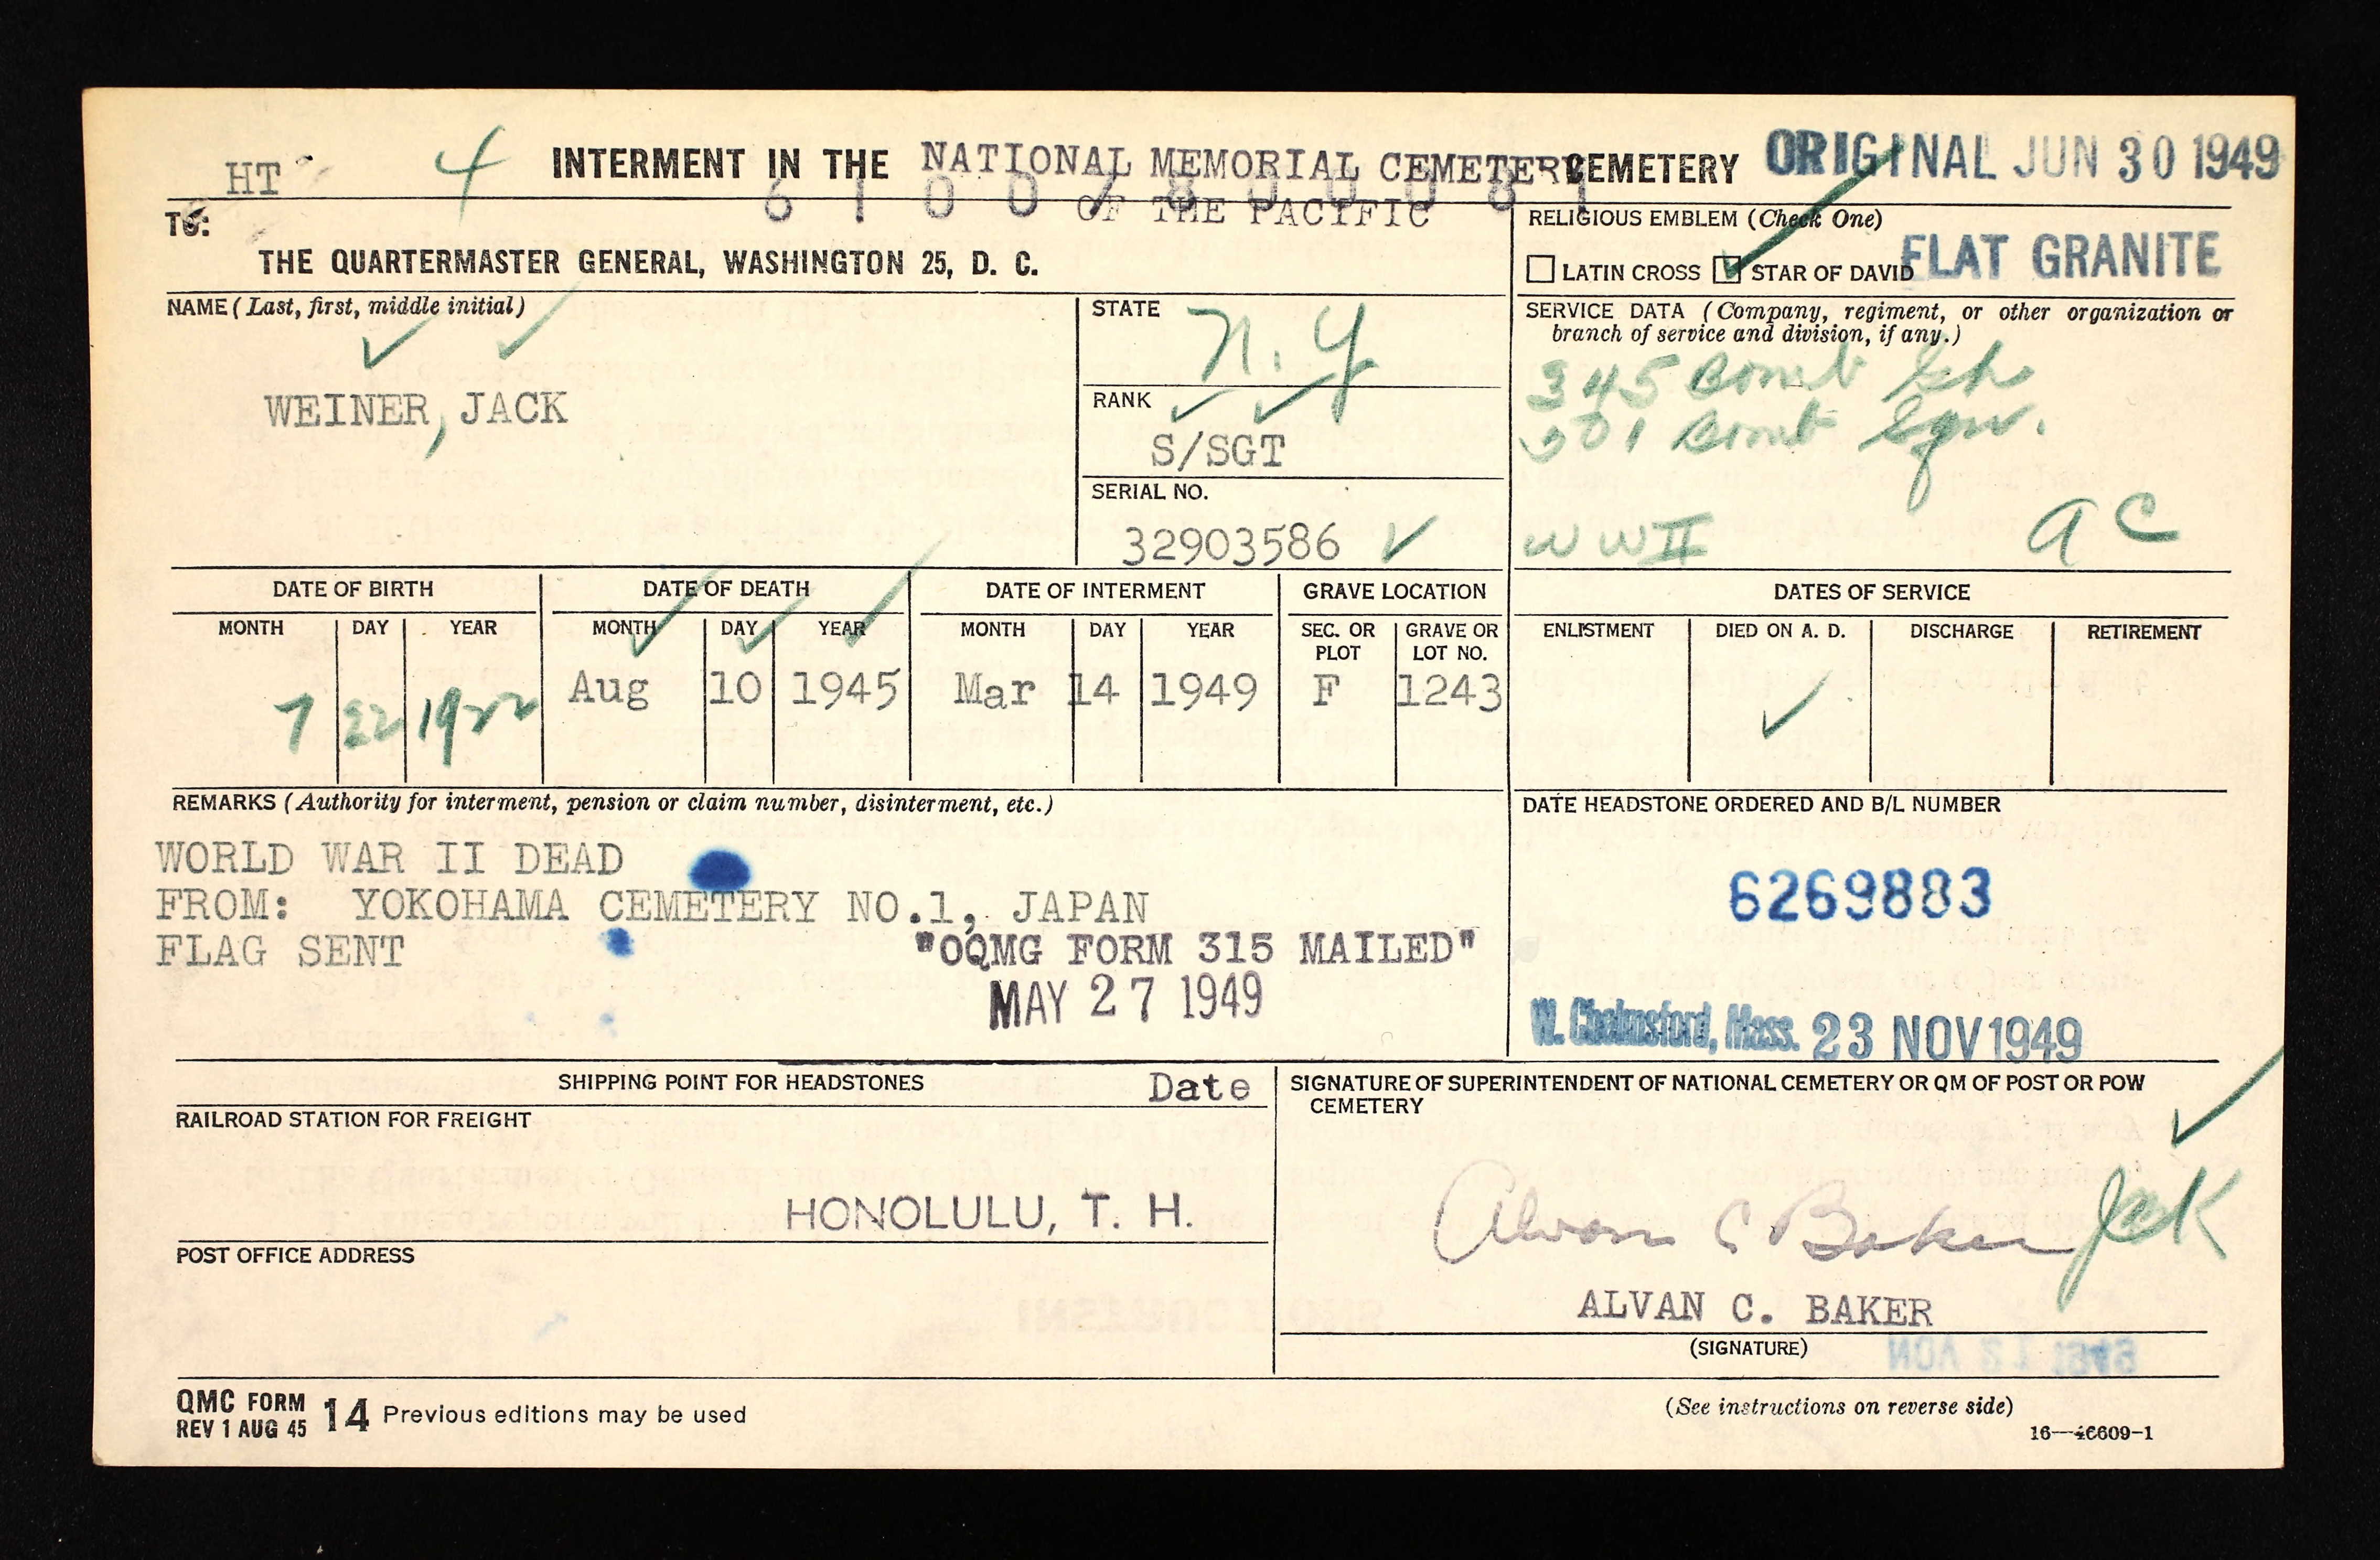 HT 4 INTERMENT IN THE NATIONAL MEMORIAL CEMETERY CEMETERY ORIGINAL JUN 30 1949
OF THE PACIFIC
TO:
THE QUARTERMASTER GENERAL, WASHINGTON 25, D. C.
RELIGIOUS EMBLEM (Check One)
LATIN CROSS STAR OF DAVID FLAT GRANITE
NAME (Last, first, middle initial)
WEINER, JACK
STATE
N. Y
RANK
S/SGT
SERIAL NO.
32903586
SERVICE DATA (Company, regiment, or other organization or
branch of service and division, if any.)
345 Bomb
Bomb Sqn.
WW II A C
DATE OF BIRTH DATE OF DEATH DATE OF INTERMENT GRAVE LOCATION DATES OF SERVICE
MONTH DAY YEAR MONTH DAY YEAR MONTH DAY YEAR SEC. OR PLOT GRAVE OR LOT NO. ENLISTMENT DIED ON A. D. DISCHARGE RETIREMENT
7 22 1922 Aug 10 1945 Mar 14 1949 F 1243
REMARKS (Authority for interment, pension or claim number, disinterment, etc.)
WORLD WAR II DEAD
FROM: YOKOHAMA CEMETERY NO.1, JAPAN
FLAG SENT
"OQMG FORM 315 MAILED"
MAY 27 1949
DATE HEADSTONE ORDERED AND B/L NUMBER
6269883
W. Chelmsford, Mass. 23 NOV 1949
SHIPPING POINT FOR HEADSTONES Date
RAILROAD STATION FOR FREIGHT
HONOLULU, T. H.
POST OFFICE ADDRESS
SIGNATURE OF SUPERINTENDENT OF NATIONAL CEMETERY OR QM OF POST OR POW
CEMETERY
Alvan C Baker
ALVAN C. BAKER
(SIGNATURE)
QMC FORM
REV 1 AUG 45 14 Previous editions may be used
(See instructions on reverse side)
16—46609-1